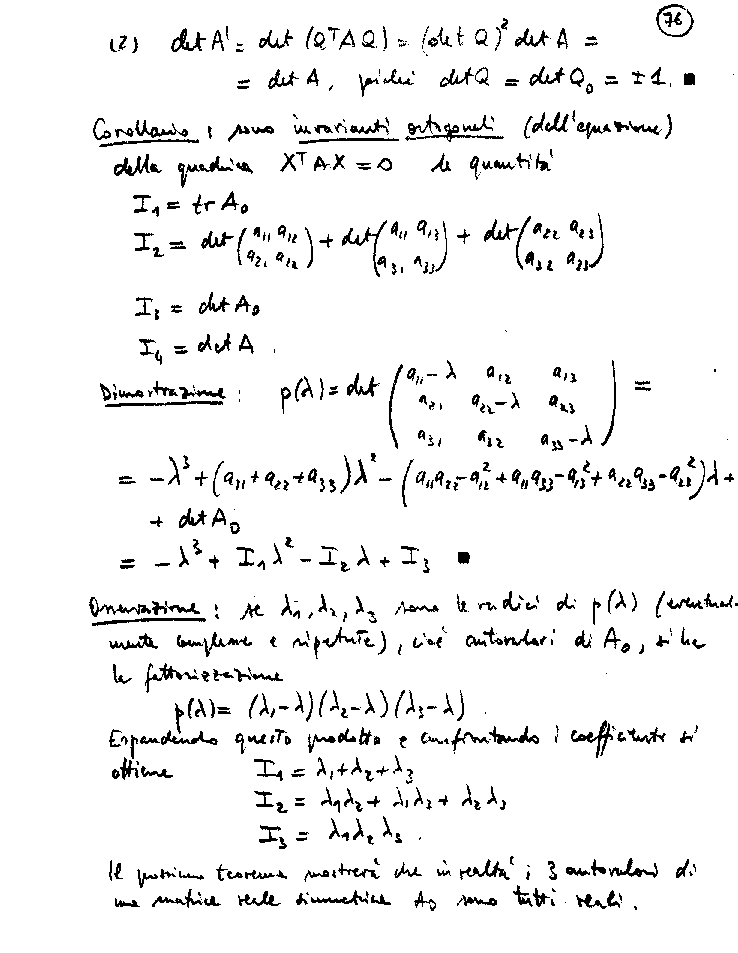 76
(2) det A' = det (QᵀAQ) = (det Q)² det A =
= det A, poiché det Q = det Q₀ = ±1. ■
Corollario: sono invarianti ortogonali (dell'equazione)
della quadrica XᵀAX = 0 le quantità
I₁ = tr A₀
I₂ = det (a₁₁ a₁₂ / a₂₁ a₂₂) + det (a₁₁ a₁₃ / a₃₁ a₃₃) + det (a₂₂ a₂₃ / a₃₂ a₃₃)
I₃ = det A₀
I₄ = det A.
Dimostrazione: p(λ) = det (a₁₁-λ a₁₂ a₁₃ / a₂₁ a₂₂-λ a₂₃ / a₃₁ a₃₂ a₃₃-λ) =
= -λ³ + (a₁₁+a₂₂+a₃₃)λ² - (a₁₁a₂₂-a₁₂²+a₁₁a₃₃-a₁₃²+a₂₂a₃₃-a₂₃²)λ +
+ det A₀
= -λ³ + I₁λ² - I₂λ + I₃ ■
Osservazione: se λ₁, λ₂, λ₃ sono le radici di p(λ) (eventual-
mente complesse e ripetute), cioè autovalori di A₀, si ha
la fattorizzazione
p(λ) = (λ₁-λ)(λ₂-λ)(λ₃-λ).
Espandendo questo prodotto e confrontando i coefficienti si
ottiene I₁ = λ₁+λ₂+λ₃
I₂ = λ₁λ₂ + λ₁λ₃ + λ₂λ₃
I₃ = λ₁λ₂λ₃.
Il prossimo teorema mostrerà che in realtà i 3 autovalori di
una matrice reale simmetrica A₀ sono tutti reali.